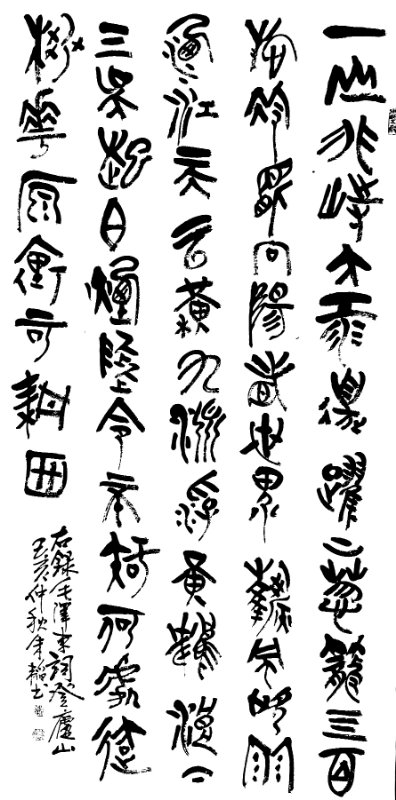 一山飛峙大江邊躍上蔥籠四百
旋冷眼向陽看世界熱風吹雨
灑江天雲橫九派浮黃鶴浪下
三吳起白煙陶令不知何處徒
桃華源裏可耕田
右錄毛澤東詞登廬山
亥仲秋書